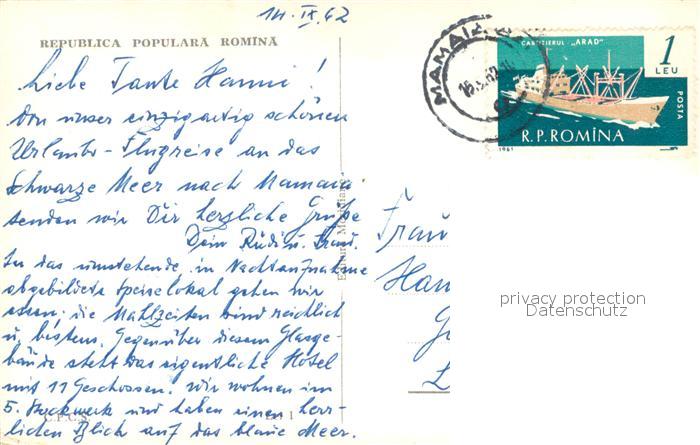 14.IX.62
REPUBLICA POPULARĂ ROMÎNĂ
Liebe Tante Hanni!
Von unser einzigartig schönen
Urlaubs-Flugreise an das
Schwarze Meer nach Mamaia
senden wir Dir herzliche Grüße
Dein Rudi u. Traud.
In das umstehende in Nachtaufnahme
abgebildete Speiselokal gehen wir
essen; die Mahlzeiten sind reichlich
u. bestens. Gegenüber diesem Glasge-
bäude steht das eigentliche Hotel
mit 11 Geschossen. Wir wohnen im
5. Stockwerk und haben einen herr-
lichen Blick auf das blaue Meer.
C.P.C.S.
MAMAIA
CARGOTIERUL „ARAD”
1
LEU
POSTA
R.P.ROMÎNA
1961
Frau
Han
privacy protection
Datenschutz